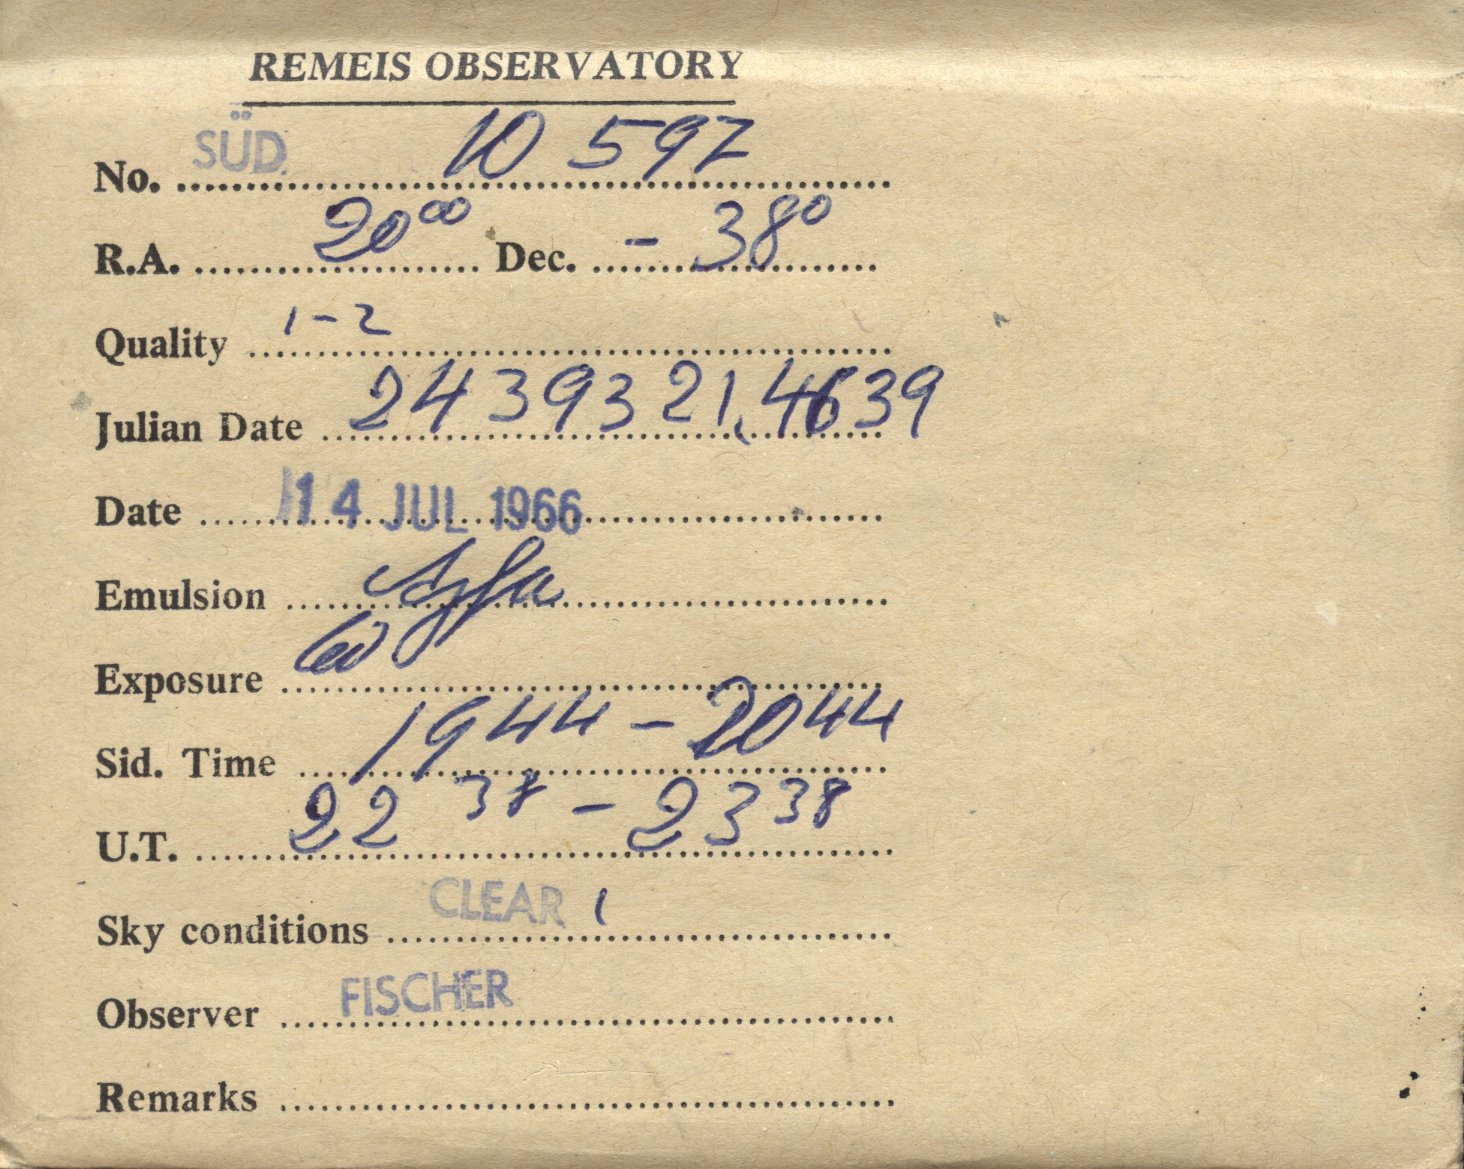 REMEIS OBSERVATORY
No. SÜD. 10 597
R.A. 20⁰⁰ Dec. - 38⁰
Quality 1-2
Julian Date 2439321,4639
Date 14 JUL 1966
Emulsion Agfa
Exposure 60
Sid. Time 19⁴⁴ - 20⁴⁴
U.T. 22³⁸ - 23³⁸
Sky conditions CLEAR 1
Observer FISCHER
Remarks